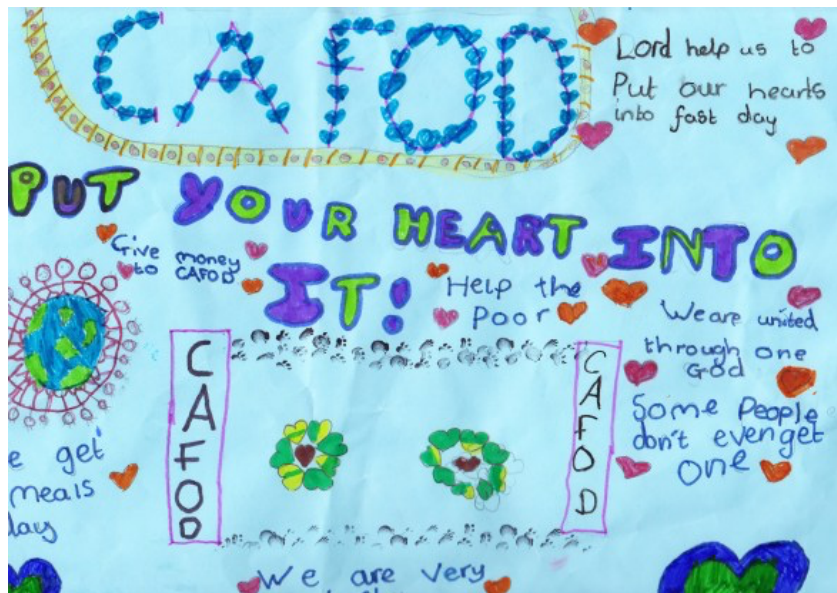 CAFOD
Lord help us to
Put our hearts
into fast day
PUT YOUR HEART INTO
IT!
Give money
to CAFOD
Help the
Poor
We are united
through one
God
CAFOD
CAFOD
Some People
don't even get
one
e get
meals
day
We are very